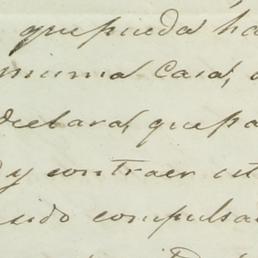 que pueda ha
misma casa,
declara, que pa
y contraer est
sido compulsa